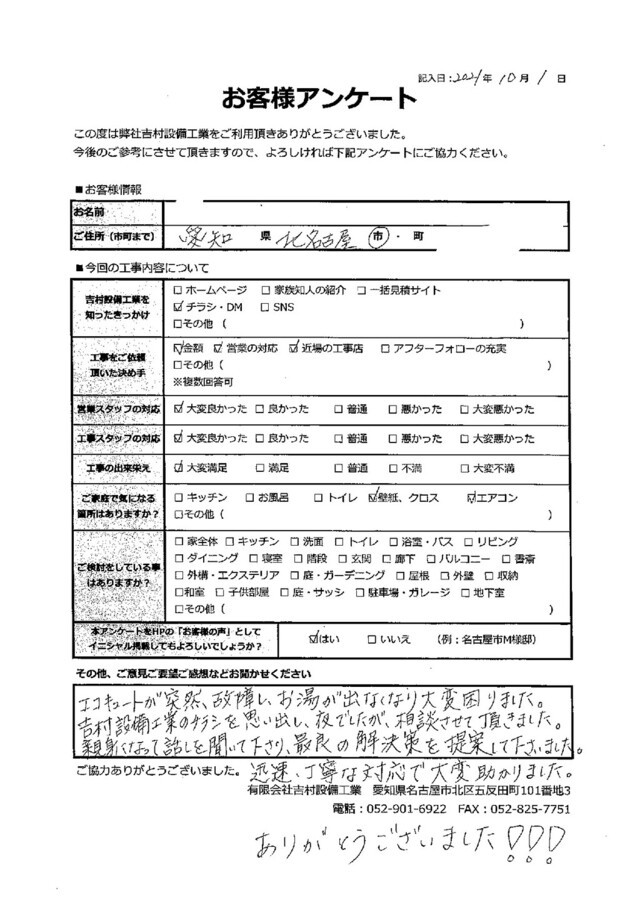 記入日：2021年 10月 1日
お客様アンケート
この度は弊社吉村設備工業をご利用頂きありがとうございました。
今後のご参考にさせて頂きますので、よろしければ下記アンケートにご協力ください。
■お客様情報
お名前
ご住所（市町まで） 愛知 県 北名古屋 市・町
■今回の工事内容について
吉村設備工業を知ったきっかけ
□ホームページ □家族知人の紹介 □一括見積サイト
☑チラシ・DM □SNS
□その他（ ）
工事をご依頼頂いた決め手
☑金額 ☑営業の対応 ☑近場の工事店 □アフターフォローの充実
□その他（ ）
※複数回答可
営業スタッフの対応 ☑大変良かった □良かった □普通 □悪かった □大変悪かった
工事スタッフの対応 ☑大変良かった □良かった □普通 □悪かった □大変悪かった
工事の出来栄え ☑大変満足 □満足 □普通 □不満 □大変不満
ご家庭で気になる箇所はありますか？
□キッチン □お風呂 □トイレ ☑壁紙、クロス ☑エアコン
□その他（ ）
ご検討をしている事はありますか？
□家全体 □キッチン □洗面 □トイレ □浴室・バス □リビング
□ダイニング □寝室 □階段 □玄関 □廊下 □バルコニー □書斎
□外構・エクステリア □庭・ガーデニング □屋根 □外壁 □収納
□和室 □子供部屋 □庭・サッシ □駐車場・ガレージ □地下室
□その他（ ）
本アンケートをHPの「お客様の声」としてイニシャル掲載してもよろしいでしょうか？ ☑はい □いいえ （例：名古屋市M様邸）
その他、ご意見ご要望ご感想などお聞かせください
エコキュートが突然、故障し、お湯が出なくなり大変困りました。
吉村設備工業のチラシを思い出し、夜でしたが、相談させて頂きました。
親身になって話しを聞いて下さり、最良の解決策を提案して下さいました。
ご協力ありがとうございました。 迅速、丁寧な対応で大変助かりました。
有限会社吉村設備工業 愛知県名古屋市北区五反田町101番地3
電話：052-901-6922 FAX：052-825-7751
ありがとうございました!!!